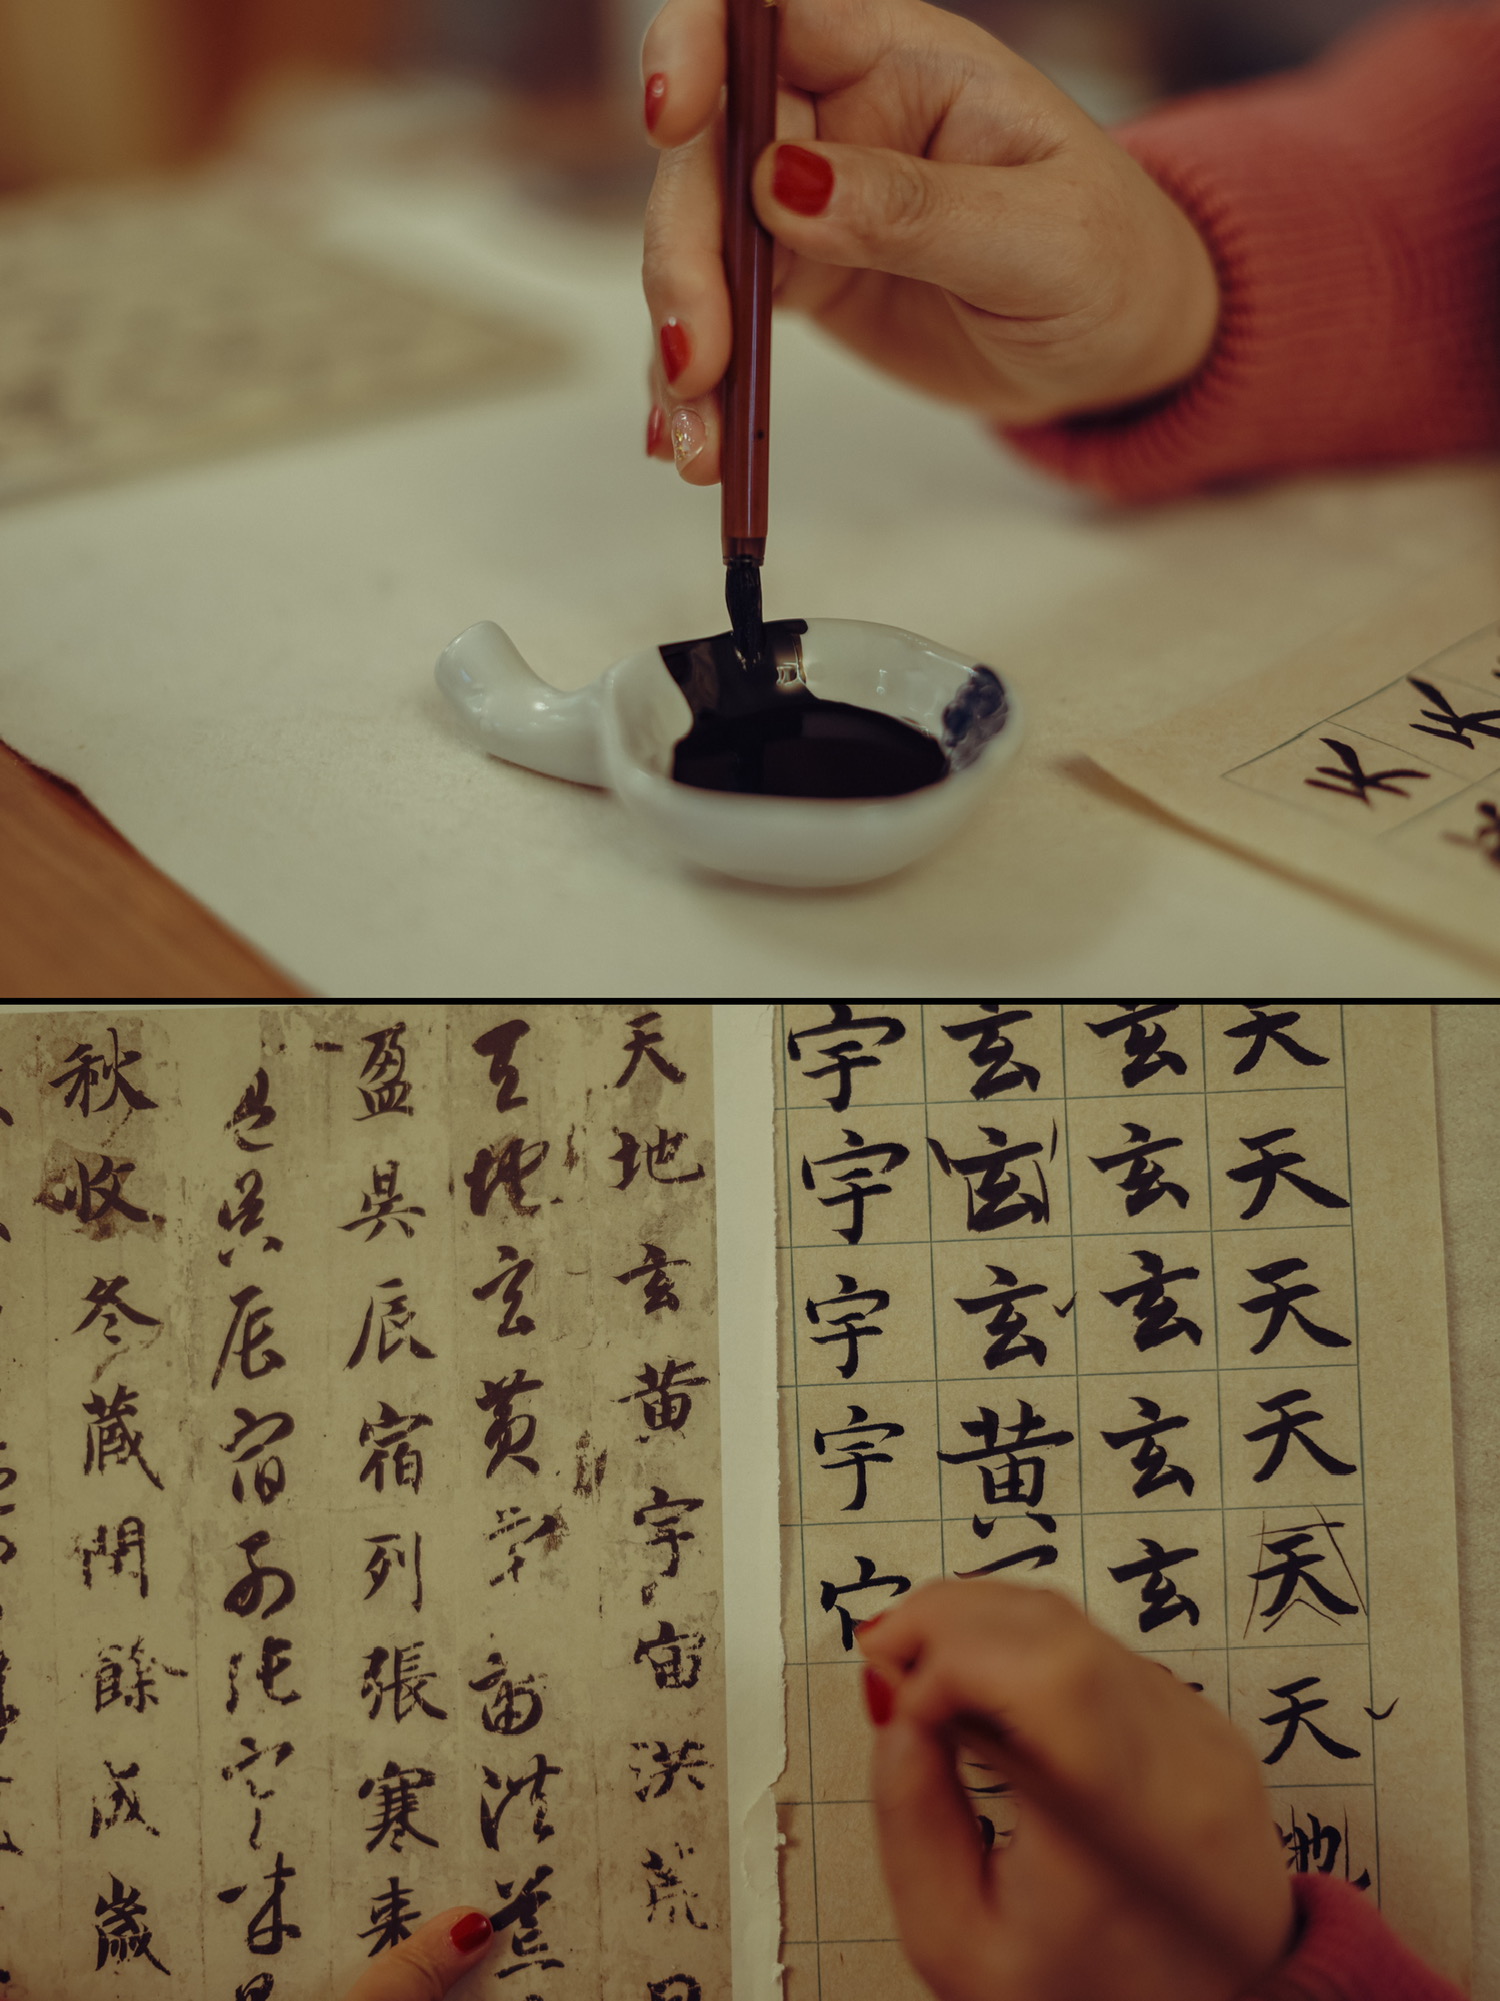 天天天天天天地
玄玄玄玄玄
玄玄玄黄
宇宇宇宇
天地玄黄宇宙洪荒日
天地玄黄宇宙洪荒
盈昃辰宿列張寒来
盈昃辰宿列張寒来
秋收冬藏閏餘成歲